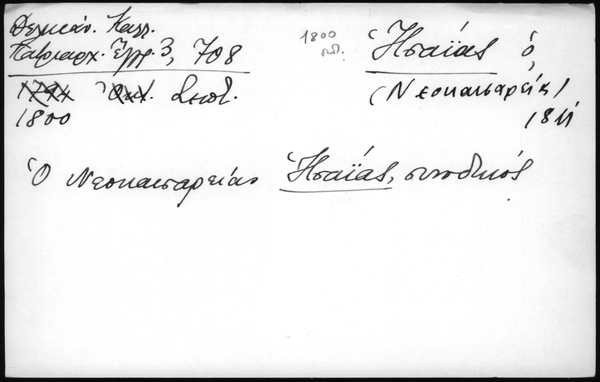 Δελικάν. Καλλ.
Πατριαρχ. Ἔγγρ. 3, 708
1794 Ὀκτ. Σεπτ.
1800
1800
σεπ.
Ἡσαΐας ὁ,
(Νεοκαισαρείας)
1811
Ὁ Νεοκαισαρείας Ἡσαΐας, συνοδικός